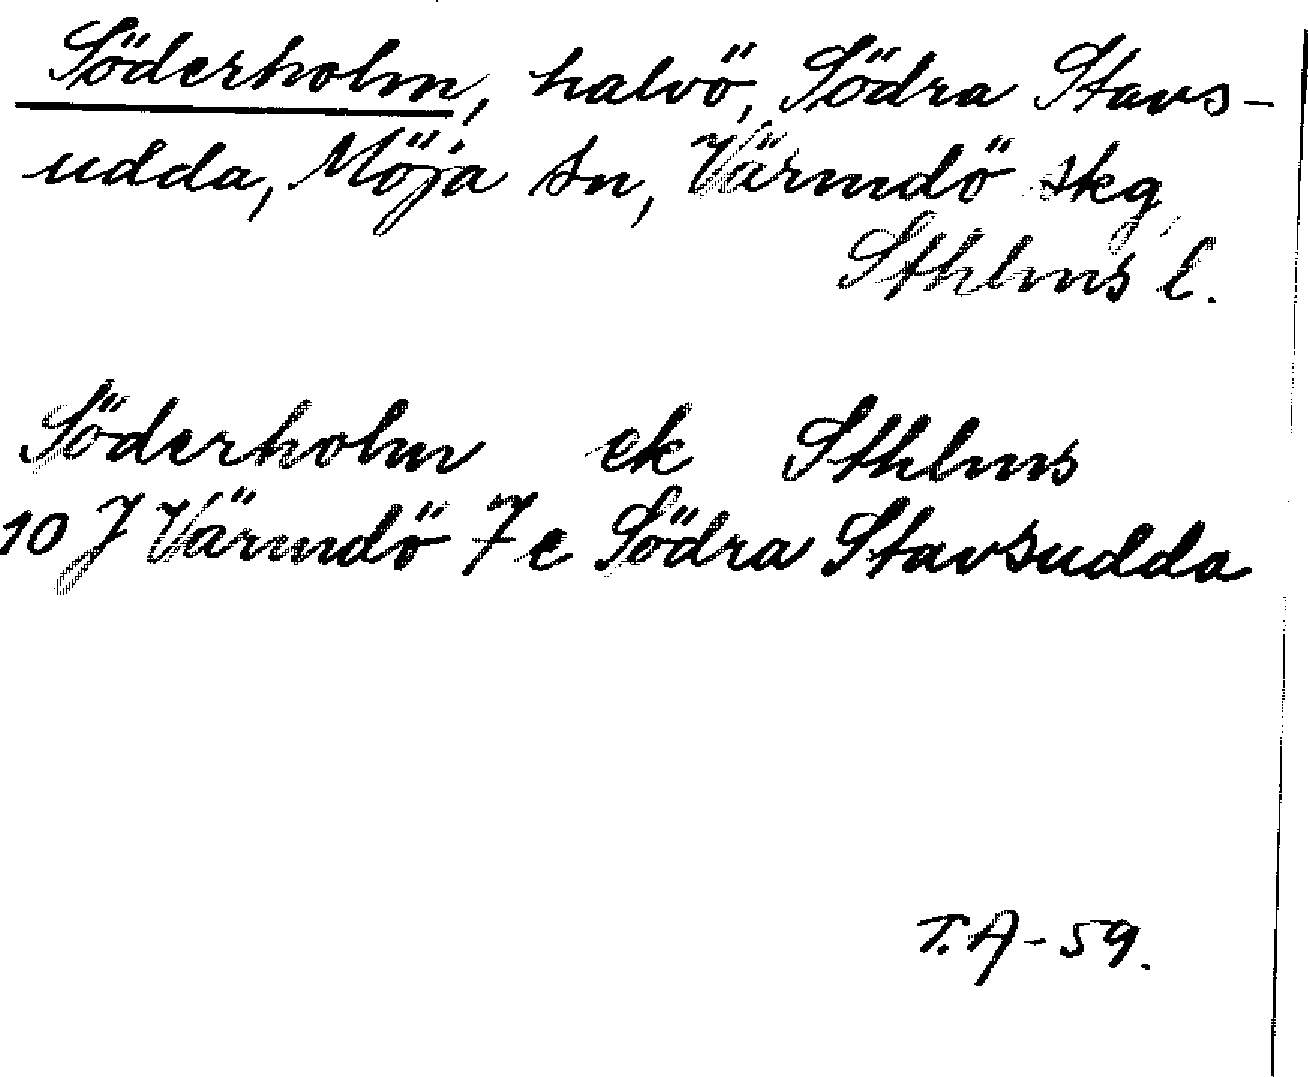 Söderholm, halvö, Södra Stavs-
udda, Möja sn, Värmdö skg,
Sthlms l.
Söderholm ek Sthlms
10 J Värmdö 7 e Södra Stavsudda
T.A-59.